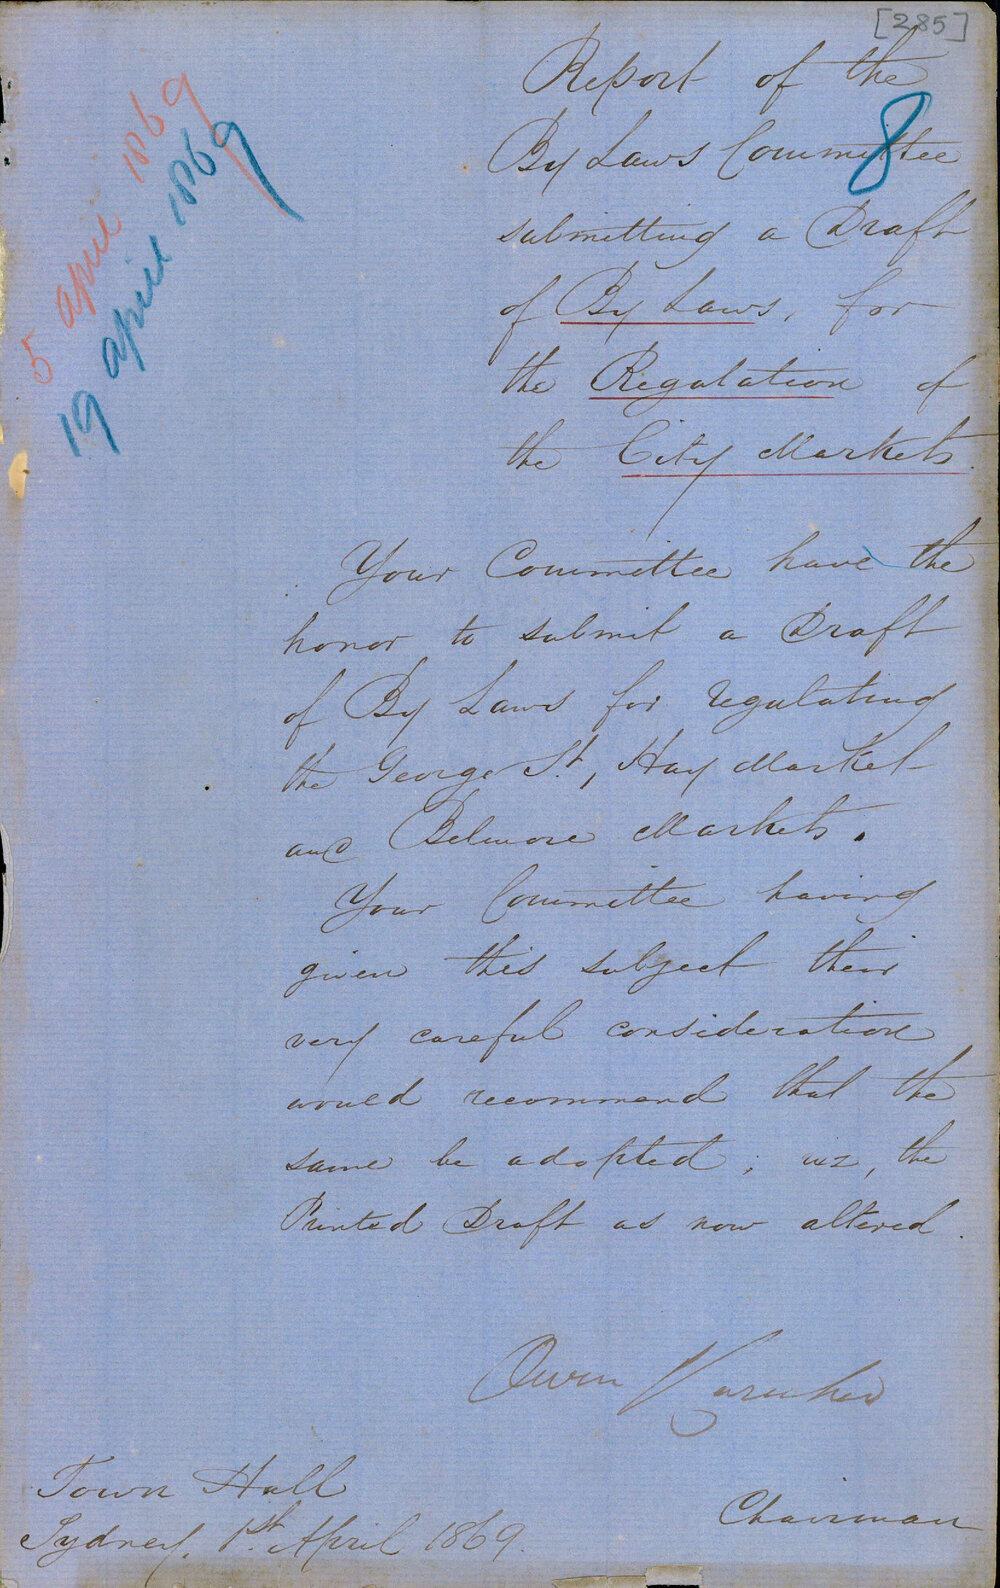 [285]
5 april 1869
19 april 1869
8
Report of the
By Laws Committee
submitting a Draft
of By Laws, for
the Regulation of
the City Markets.
Your Committee have the
honor to submit a Draft
of By Laws for regulating
the George St, Hay Market
and Belmore Markets.
Your Committee having
given this subject their
very careful consideration
would recommend that the
same be adopted; viz, the
Printed Draft as now altered.
Owen
Chairman
Town Hall
Sydney, 1st April 1869.